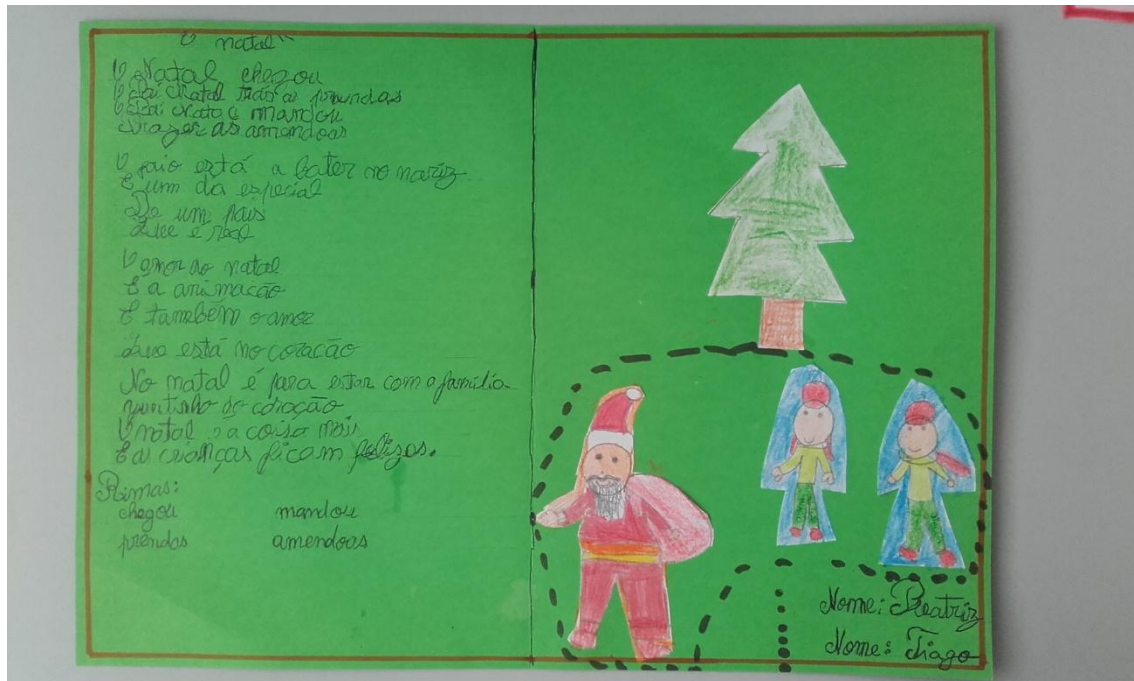 O natal"
O Natal chegou
O Pai Natal trás as prendas
O Pai Natal mandou
trazer as amendoas
O está a bater no nariz
É um da especial
De um país
Que é real
O amor do natal
É a animação
É também o amor
Que está no coração
No natal é para estar com a família
do coração
O natal é a coisa mais
E as crianças ficam felizes.
Rimas:
chegou mandou
prendas amendoas
Nome: Beatriz
Nome: Tiago